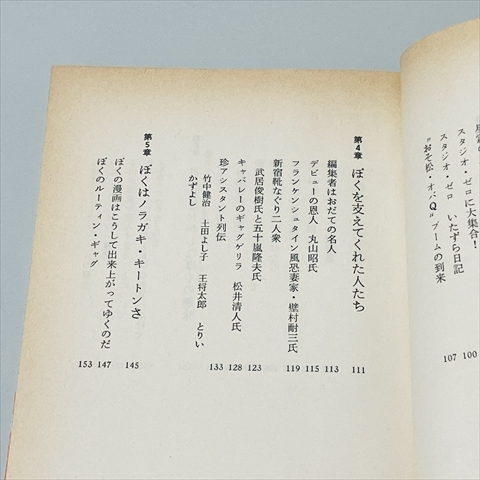 スタジオ・ゼロに大集合！
スタジオ・ゼロ いたずら日記 100
“おそ松・オバQ”ブームの到来 107
第4章 ぼくを支えてくれた人たち 111
編集者はおだての名人 113
デビューの恩人 丸山昭氏 115
フランケンシュタイン風恐妻家・壁村耐三氏 119
新宿靴なぐり二人衆
武居俊樹氏と五十嵐隆夫氏 123
キャバレーのギャグゲリラ 松井清人氏 128
珍アシスタント列伝 133
竹中健治 土田よし子 王将太郎 とりい
かずよし
第5章 ぼくはノラガキ・キートンさ 145
ぼくの漫画はこうして出来上がってゆくのだ 147
ぼくのルーティン・ギャグ 153